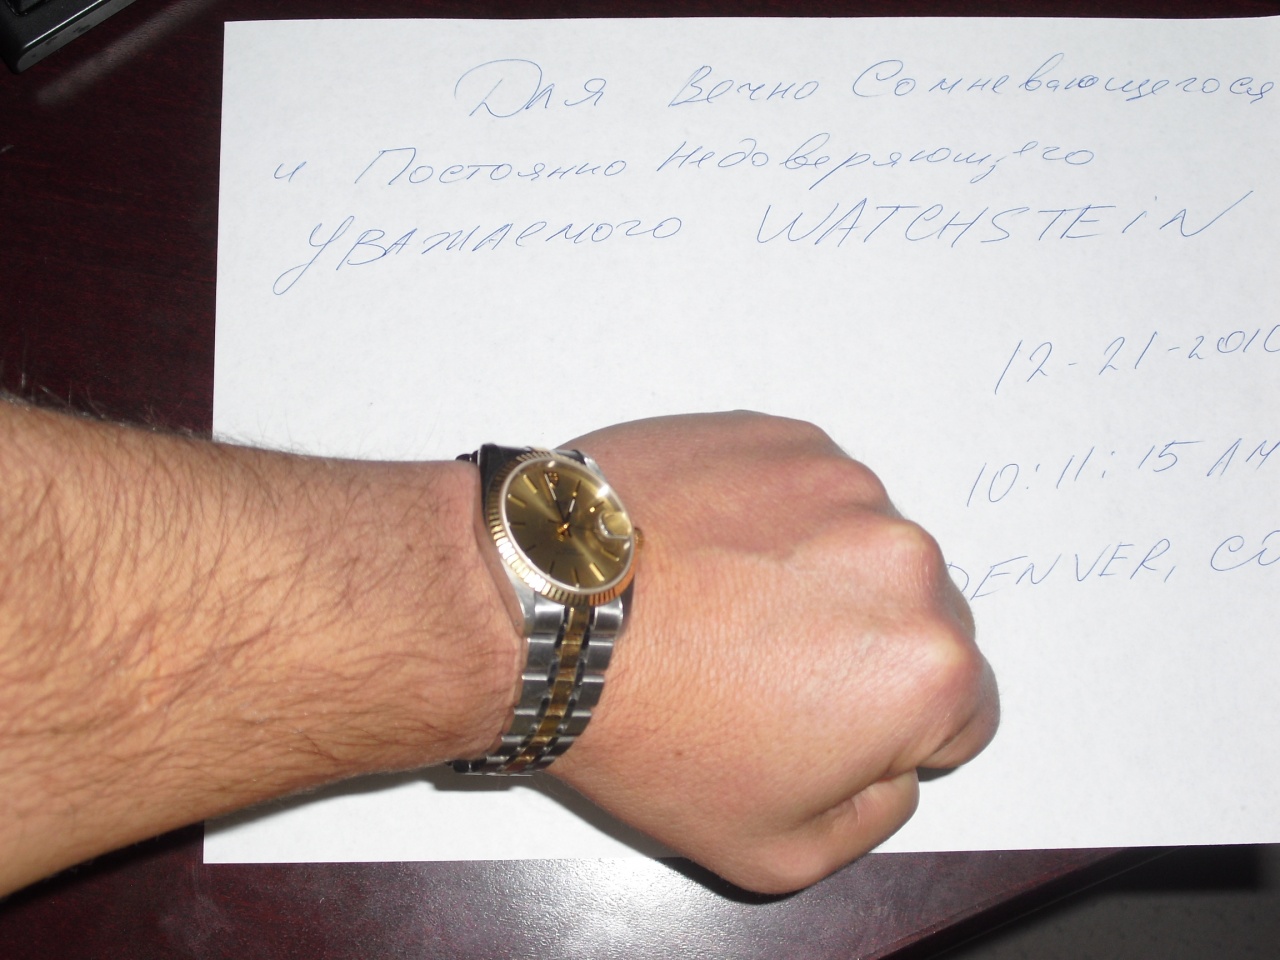 Для Вечно Сомневающегося
и Постоянно Недоверяющего
Уважаемого WATCHSTEIN
12-21-2010
10:11:15 AM
DENVER, CO